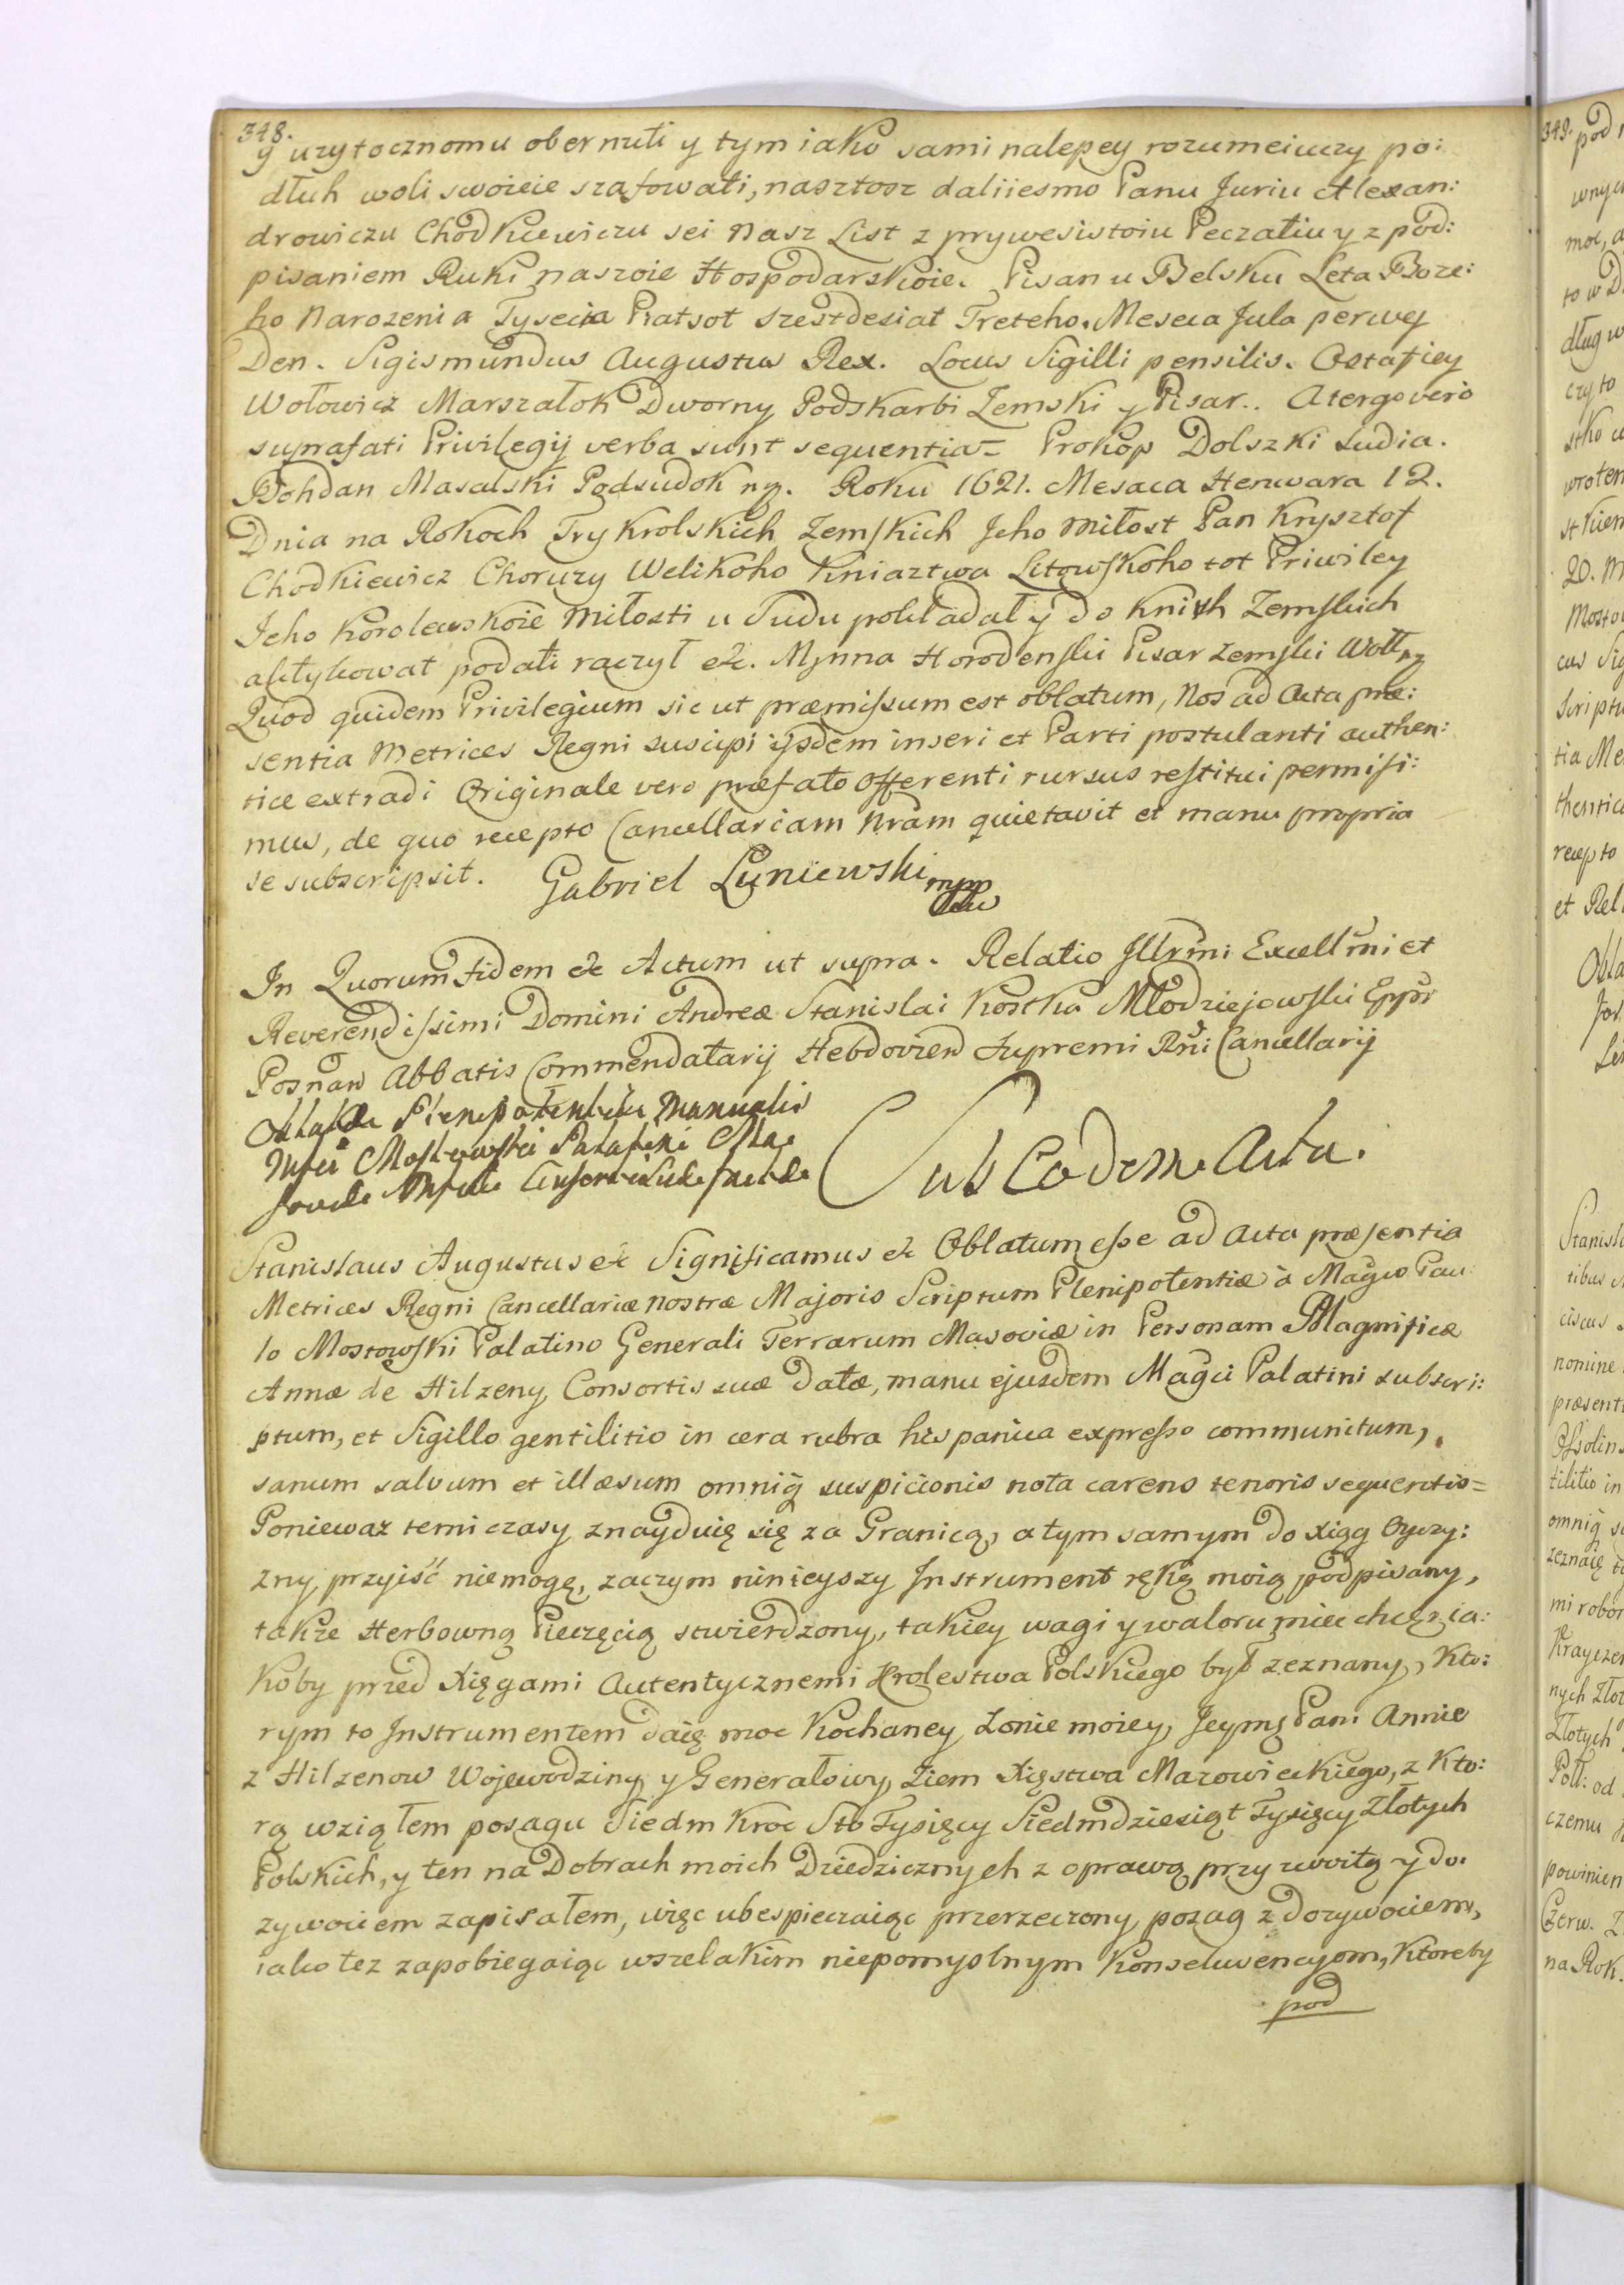 348.
y uzytocznomu obernuti y tym iako sami nalepey rozumeiuczy po:
dłuh woli swoieie szafowati, nasztosz daliiesmo Panu Juriu Alexan:
drowiczu Chodkiewiczu sei nasz List z prywesistoiu Peczatiu y z pod:
pisaniem Ruki naszoie Hospodarskoie. Pisan u Belsku Leta Boze:
ho Narozenia Tysecia Piatsot szestdesiat Treteho. Meseca Jula perwy
Den. Sigismundus Augustus Rex. Locus Sigilli pensilis. Ostafiey
Wołowicz Marszałok Dworny Podskarbi Zemski y Pisar.. Atergo vero
suprafati Privilegij verba sunt sequentia = Prokop Dolszki Sudia.
Bohdan Masalski Podsudok mp. Roku 1621. Mesaca Henwara 12.
Dnia na Rokoch Trykrolskich Zemskich Jeho Miłost Pan Krysztof
Chodkiewicz Choruzy Welikoho Kniaztwa Litowskoho tot Priwiley
Jeho Korolewskoie Miłosti u Sudu pokładał y do Knih Zemskich
aktykowat podati raczył &c. Mynna Horodenski Pisar Zemski Wołł mp
Quod quidem Privilegium sic ut præmissum est oblatum, Nos ad Acta præ:
sentia Metrices Regni suscipi ijsdem inseri et Parti postulanti authen:
tice extradi Originale vero præfato Offerenti rursus restitui permisi:
mus, de quo recepto Cancellariam Nram quietavit et manu propria
se subscripsit. Gabriel Luniewski mpp
In Quorum fidem &c Actum ut supra. Relatio Illrmi Excellmi et
Reverendissimi Domini Andreæ Stanislai Kostka Młodziejowski Eppi
Posnan Abbatis Commendatarij Hebdovien Supremi Rni Cancellarij
Oblata Plenipotentiæ Manualis
Mfci Mostowski Palatini Ma
soviæ Mfcæ Consorti Suæ factæ
Sub Eadem Acta.
Stanislaus Augustus &c Significamus &c Oblatum esse ad Acta præsentia
Metrices Regni Cancellariæ nostræ Majoris Scriptum Plenipotentiæ à Magco Pau:
lo Mostowski Palatino Generali Terrarum Masoviæ in Personam Magnificæ
Annæ de Hilzeny Consortis suæ datæ, manu ejusdem Magci Palatini subscri:
ptum, et Sigillo gentilitio in cera rubra hispanica expresso communitum,
sanum salvum et illæsum omniq suspicionis nota carens tenoris sequentis =
Poniewaz temi czasy znayduię się za Granicą, a tym samym do Xiąg Oyczy:
zny przyiść niemogę, zaczym ninieyszy Instrument ręką moią podpisany,
także Herbowną Pieczęcią stwierdzony, takiey wagi y waloru miec chcę ia:
koby przed Xięgami Autentycznemi Krolestwa Polskiego był zeznany, kto:
rym to Instrumentem daię moc Kochaney Zonie moiey, Jeymę Pani Annie
z Hilzenow Wojewodziny y Generałowy Ziem Xięstwa Mazowieckiego, z Kto:
rą wziąłem posagu Siedm Kroc Sto Tysięcy Siedmdziesiąt Tysięcy Złotych
Polskich, y ten na Dobrach moich Dziedzicznych z oprawą przyzwoitą y do:
zywociem zapisałem, więc ubespieczaiąc przerzeczony posag z dozywociem,
iako tez zapobiegaiąc wszelakim niepomyslnym Konsekwencyom, Ktoreby
pod
349. pod
wnych
moc, a
to w D
dług w
czy to
stko
wroten
skiem
20. M
Mosto
cus Sig
Scriptu
tia Me
thentice
recepto
et Rel
Obla
Stanisl
tibus
ciscus
nomine
præsent
Ossolins
tilitio in
omniq su
zeznaię
mi robor
Krayczen
nych Złot
Złotych
Poll: od
czemu
powinien
Czerw. Z
na Rok.